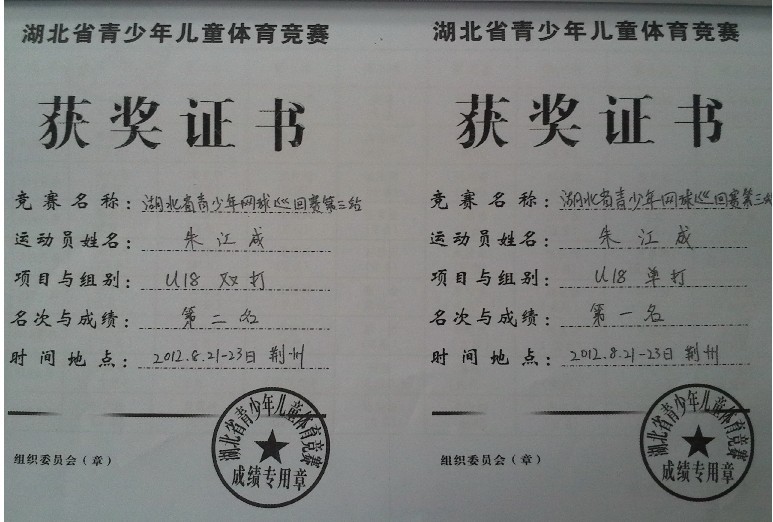 湖北省青少年儿童体育竞赛
获奖证书
竞赛名称：湖北省青少年网球巡回赛第三站
运动员姓名：朱江成
项目与组别：U18 双打
名次与成绩：第二名
时间地点：2012.8.21-23日 荆州
组织委员会（章）
湖北省青少年儿童体育竞赛
成绩专用章
湖北省青少年儿童体育竞赛
获奖证书
竞赛名称：湖北省青少年网球巡回赛第三站
运动员姓名：朱江成
项目与组别：U18 单打
名次与成绩：第一名
时间地点：2012.8.21-23日 荆州
组织委员会（章）
湖北省青少年儿童体育竞赛
成绩专用章